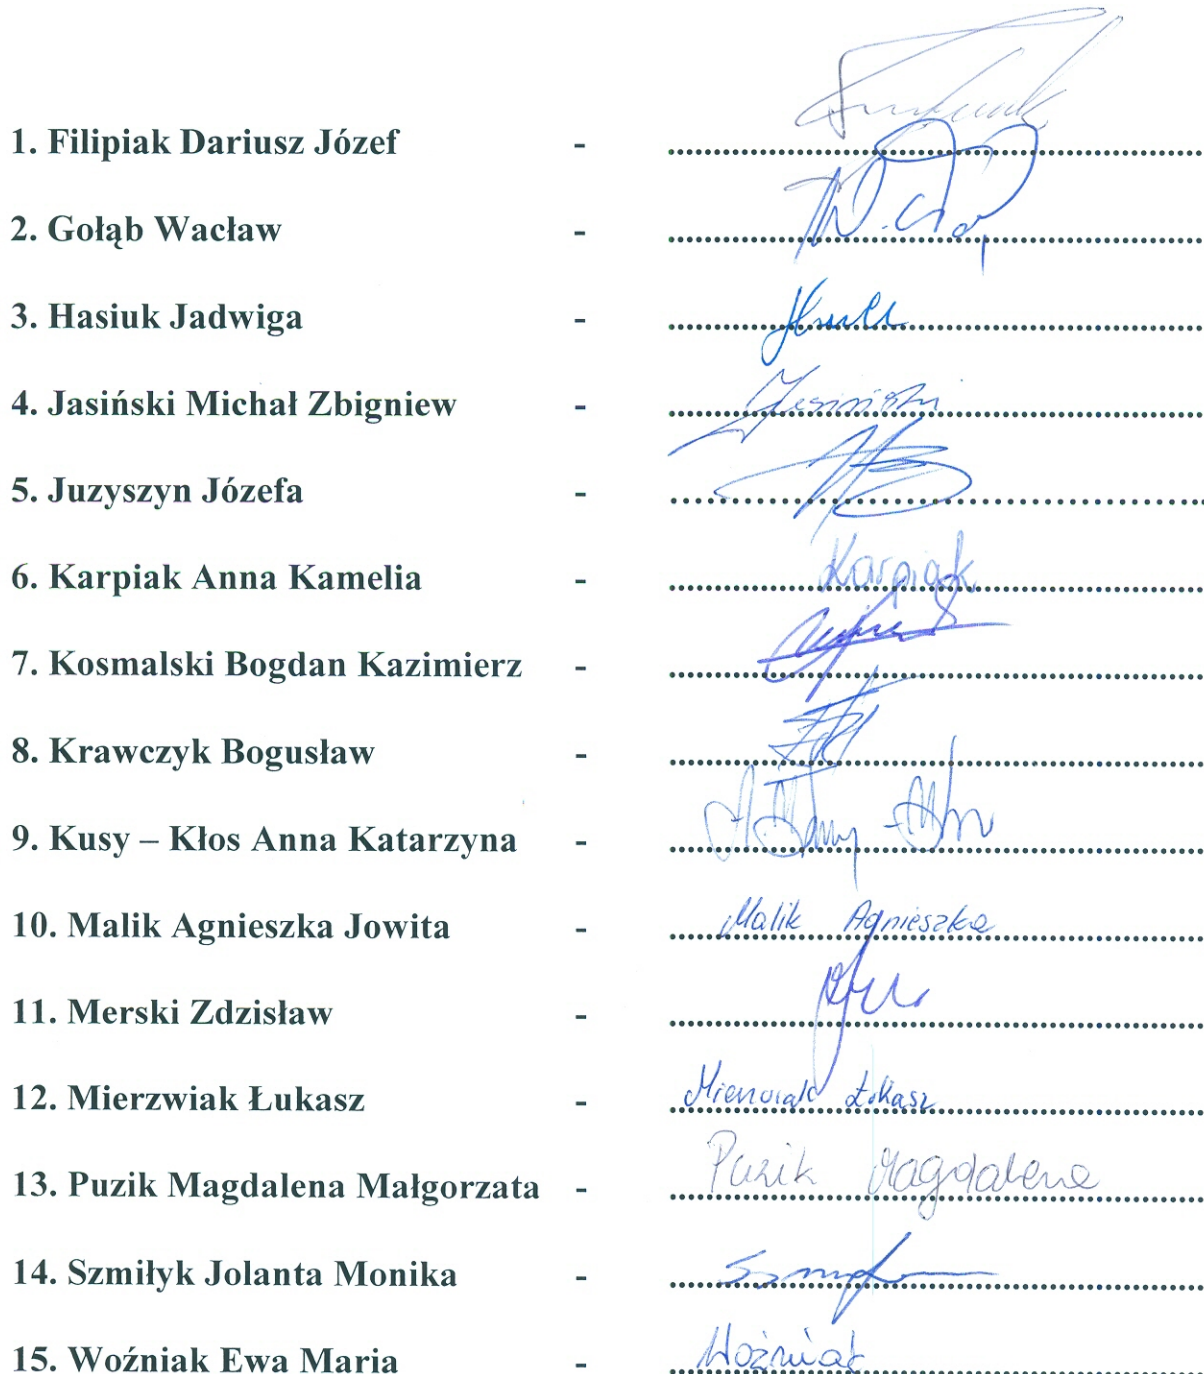 1. Filipiak Dariusz Józef - ...............
2. Gołąb Wacław - ...............
3. Hasiuk Jadwiga - ...............
4. Jasiński Michał Zbigniew - ............... Jasiński
5. Juzyszyn Józefa - ...............
6. Karpiak Anna Kamelia - ............... Karpiak
7. Kosmalski Bogdan Kazimierz - ...............
8. Krawczyk Bogusław - ...............
9. Kusy – Kłos Anna Katarzyna - ...............
10. Malik Agnieszka Jowita - ............... Malik Agnieszka
11. Merski Zdzisław - ...............
12. Mierzwiak Łukasz - ............... Mierzwiak Łukasz
13. Puzik Magdalena Małgorzata - ............... Puzik Magdalena
14. Szmiłyk Jolanta Monika - ...............
15. Woźniak Ewa Maria - ............... Woźniak